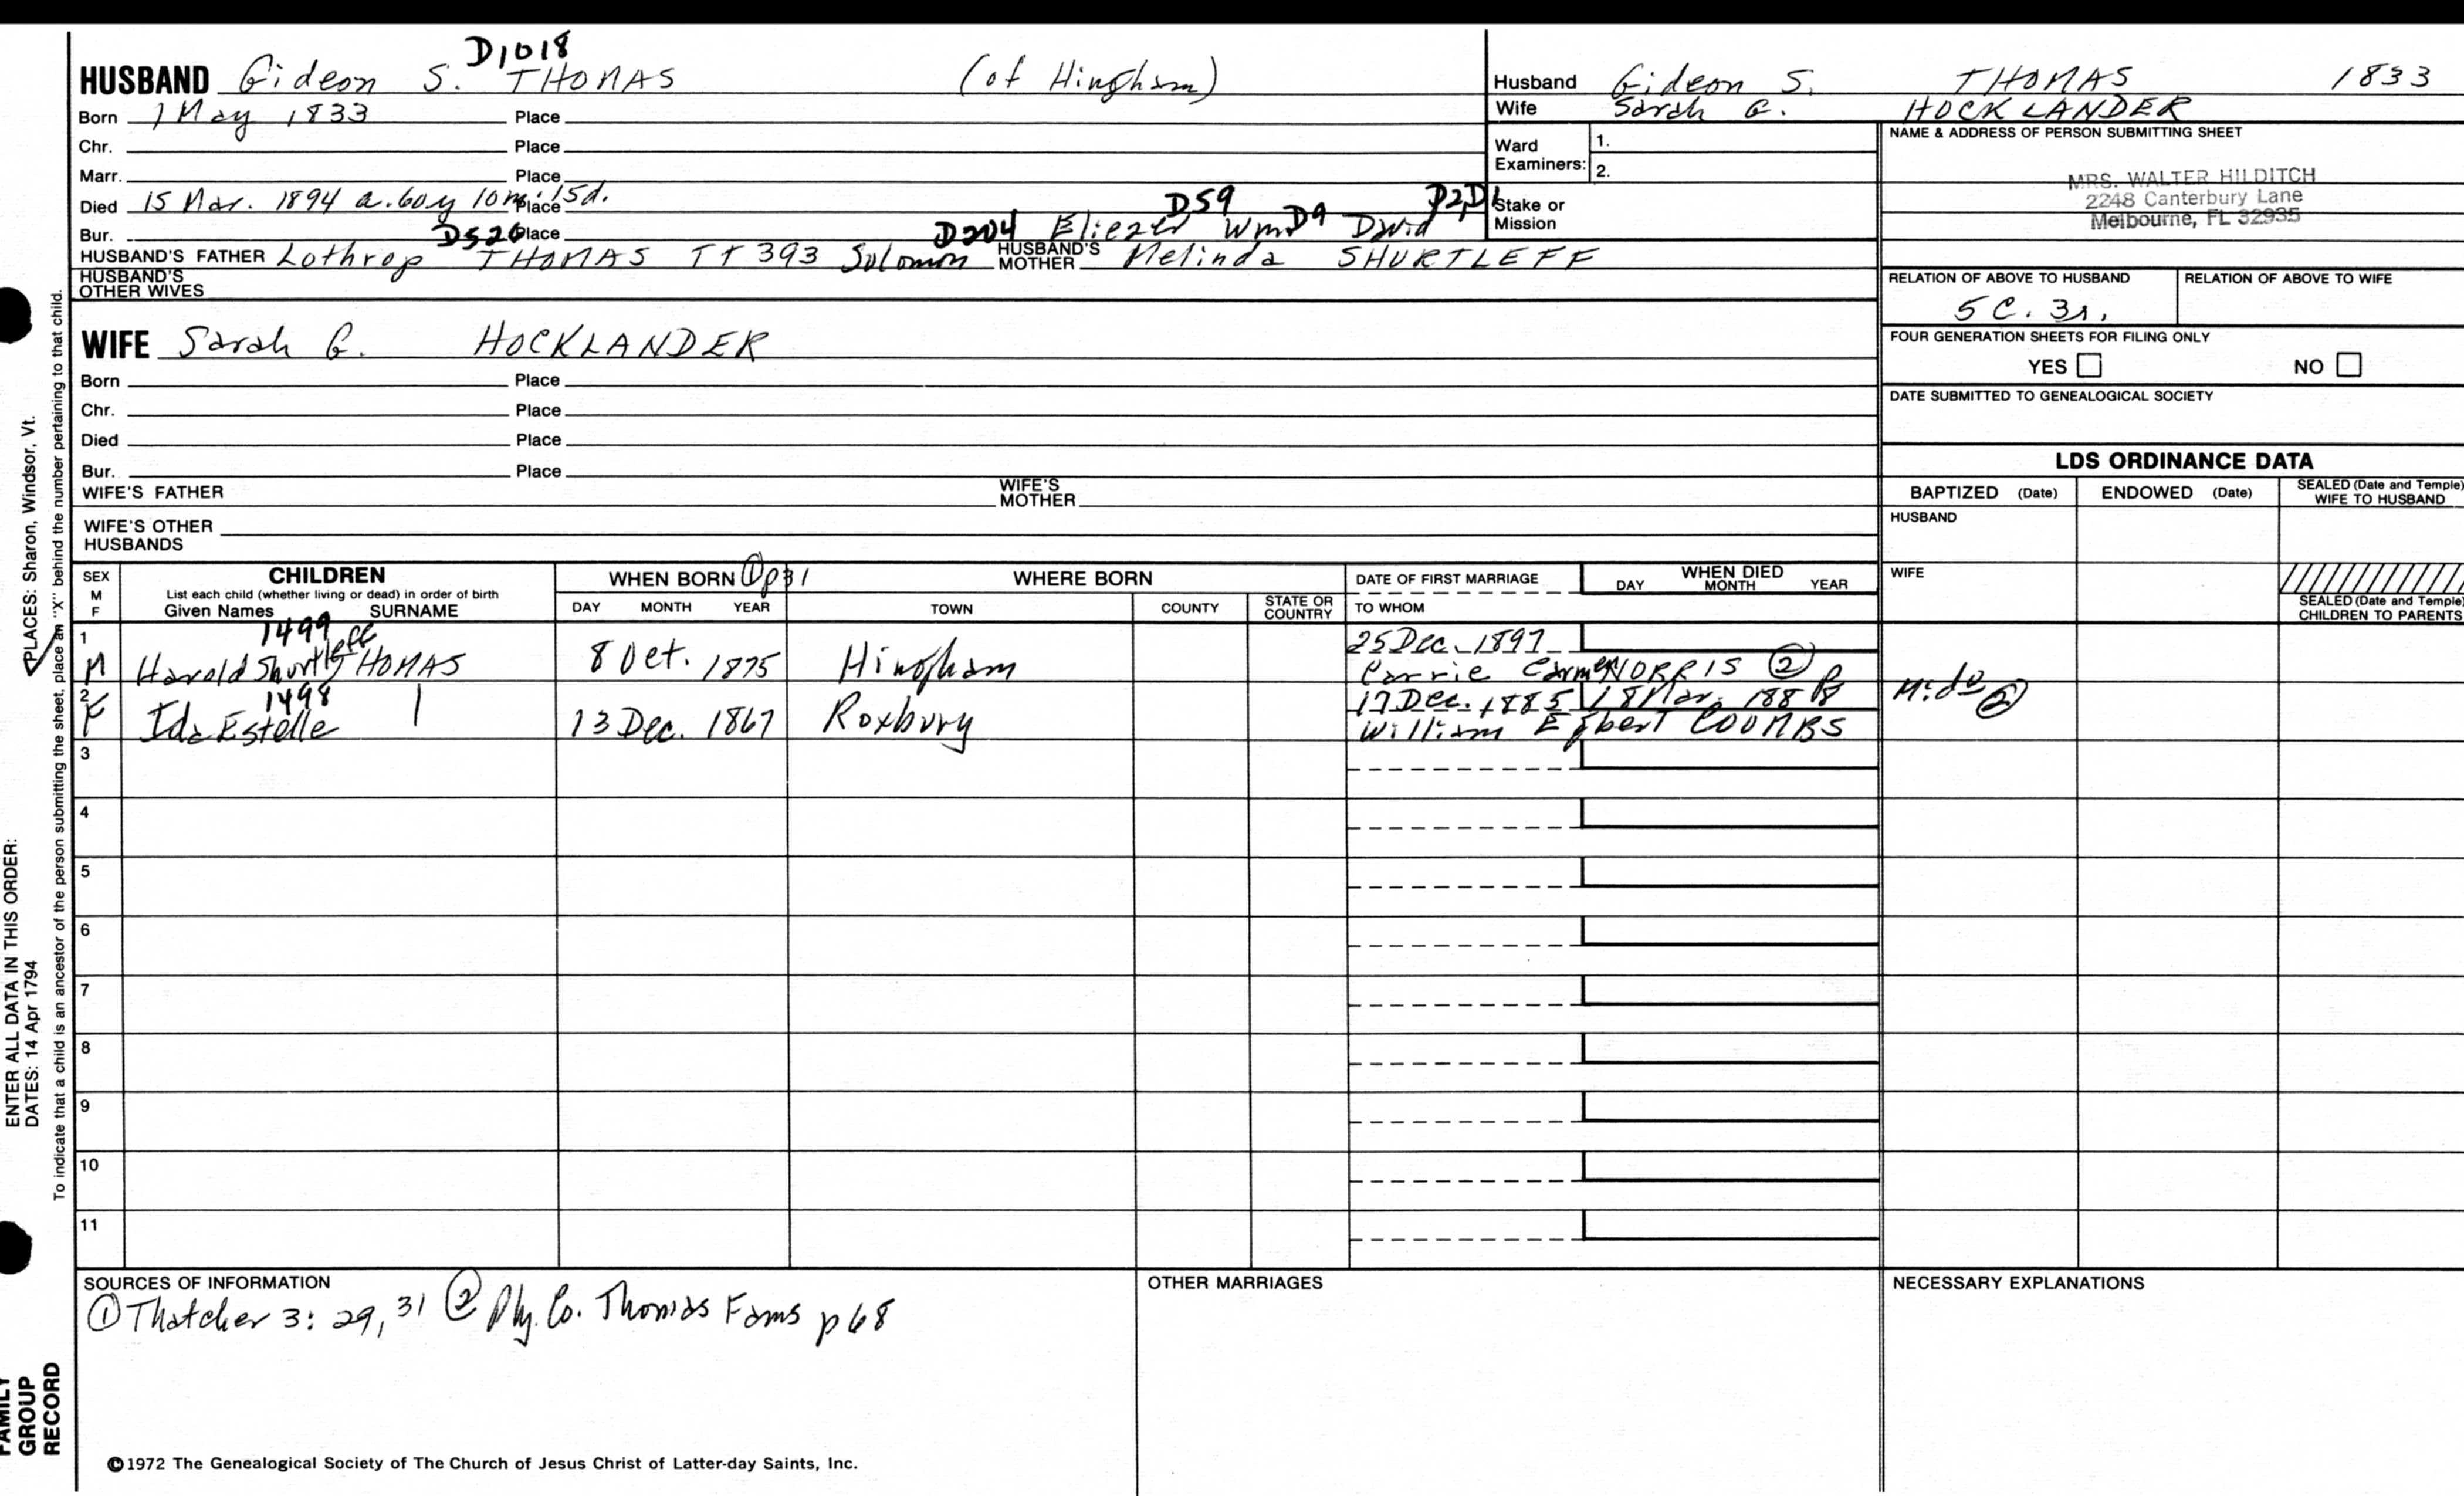 D1018
HUSBAND Gideon S. THOMAS (of Hingham)
Born 1 May 1833 Place
Chr. Place
Marr. Place
Died 15 Mar. 1894 a. 60y 10m. 15d. Place
Bur. Place
D526 D204 Eliezer D59 Wm D9 David D2, D1
HUSBAND'S FATHER Lothrop THOMAS TT 393 Solomon HUSBAND'S MOTHER Melinda SHURTLEFF
HUSBAND'S OTHER WIVES
WIFE Sarah G. HOCKLANDER
Born Place
Chr. Place
Died Place
Bur. Place
WIFE'S FATHER WIFE'S MOTHER
WIFE'S OTHER HUSBANDS
Husband Gideon S. THOMAS 1833
Wife Sarah G. HOCKLANDER
Ward Examiners: 1.
2.
Stake or Mission
NAME & ADDRESS OF PERSON SUBMITTING SHEET
MRS. WALTER HILDITCH
2248 Canterbury Lane
Melbourne, FL 32935
RELATION OF ABOVE TO HUSBAND RELATION OF ABOVE TO WIFE
5 C. 3r.
FOUR GENERATION SHEETS FOR FILING ONLY
YES NO
DATE SUBMITTED TO GENEALOGICAL SOCIETY
LDS ORDINANCE DATA
BAPTIZED (Date) ENDOWED (Date) SEALED (Date and Temple) WIFE TO HUSBAND
HUSBAND
WIFE
SEALED (Date and Temple) CHILDREN TO PARENTS
SEX M F
CHILDREN
List each child (whether living or dead) in order of birth
Given Names SURNAME
WHEN BORN ① p31
DAY MONTH YEAR
WHERE BORN
TOWN COUNTY STATE OR COUNTRY
DATE OF FIRST MARRIAGE
TO WHOM
WHEN DIED
DAY MONTH YEAR
1 1499 25 Dec. 1897
M Harold Shurtleff THOMAS 8 Oct. 1875 Hingham Carrie Carmen NORRIS ②
2 1498 17 Dec. 1885 18 Mar. 188
F Ida Estelle 13 Dec. 1867 Roxbury William Egbert COOMBS
②
3
4
5
6
7
8
9
10
11
SOURCES OF INFORMATION
① Thatcher 3: 29, 31 ② Ply. Co. Thomas Fams p 68
OTHER MARRIAGES
NECESSARY EXPLANATIONS
©1972 The Genealogical Society of The Church of Jesus Christ of Latter-day Saints, Inc.
To indicate that a child is an ancestor of the person submitting the sheet, place an "X" behind the number pertaining to that child.
ENTER ALL DATA IN THIS ORDER:
DATES: 14 Apr 1794 PLACES: Sharon, Windsor, Vt.
FAMILY GROUP RECORD